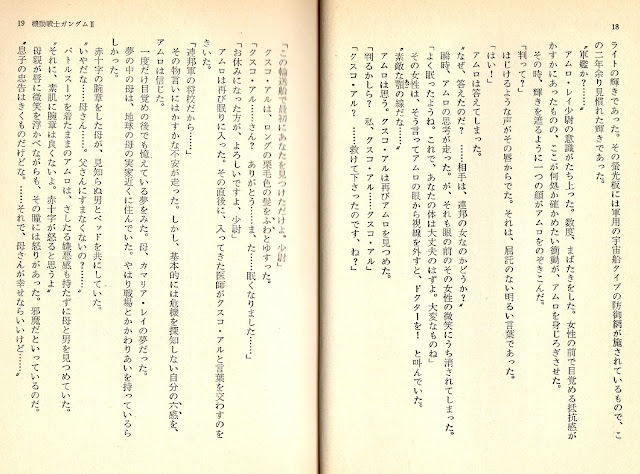 18
ライトの輝きであった。その螢光板には軍用の宇宙船タイプの防御網が施されているもので、こ
の二年余り見慣れた輝きであった。
“軍艦か?……”
アムロ・レイ少尉の意識がたち上った。数度、まばたきをした。女性の前で目覚める抵抗感が
かすかにあったものの、ここが何処か確かめたい衝動が、アムロを身じろぎさせた。
その時、輝きを遮るように一つの顔がアムロをのぞきこんだ。
「判って?」
はじけるような声がその唇からでた。それは、屈託のない明るい言葉であった。
「はい!」
アムロは答えてしまった。
“なぜ、答えたのだ? ……相手は、連邦の女なのかどうか?”
瞬時、アムロの思考が走った。が、それも眼の前のその女性の微笑にうち消されてしまった。
「よく眠ったようね。これで、あなたの体は大丈夫のはずよ。大変なものね」
その女性は、そう言ってアムロの眼から視線を外すと、ドクターを! と叫んでいた。
“素敵な顎の線だな……”
アムロは思う。クスコ・アルは再びアムロを見つめた。
「判るかしら? 私、クスコ・アル」
「クスコ・アル? ……救けて下さったのです、ね?」
19 機動戦士ガンダムⅡ
「この輸送船で最初にあなたを見つけただけよ、少尉」
クスコ・アルは、ロングの栗毛色の髪をふわとゆすった。
「クスコ・アル……さん? ありがとう……ま、た……眠くなりました……」
「お休みになった方が、よろしいですよ、少尉」
アムロは再び眠りに入った。その直後に、入ってきた医師がクスコ・アルと言葉を交わすのを
きいた。
「連邦軍の将校だから……」
その物言いにはかすかな不安が走った。しかし、基本的には危機を探知しない自分の六感を、
アムロは信じた。
一度だけ目覚めの後でも憶えている夢をみた。母、カマリア・レイの夢だった。
夢の中の母は、地球の母の実家近くに住んでいた。やはり戦場とかかわりあいを持っているら
しかった。
赤十字の腕章をした母が、見知らぬ男とベッドを共にしていた。
“いやだな……母さん……。父さんにすまなくないの?……”
バトルスーツを着たままのアムロは、さしたる嫌悪感も持たずに母と男を見つめていた。
“それに、素肌に腕章は良くないよ。赤十字が怒ると思うよ”
母親が唇に微笑を浮かべながらも、その瞳には怒りがあった。邪魔だといっているのだ。
“息子の忠告はきくものだけどな。……それで、母さんが幸せならいいけど……”